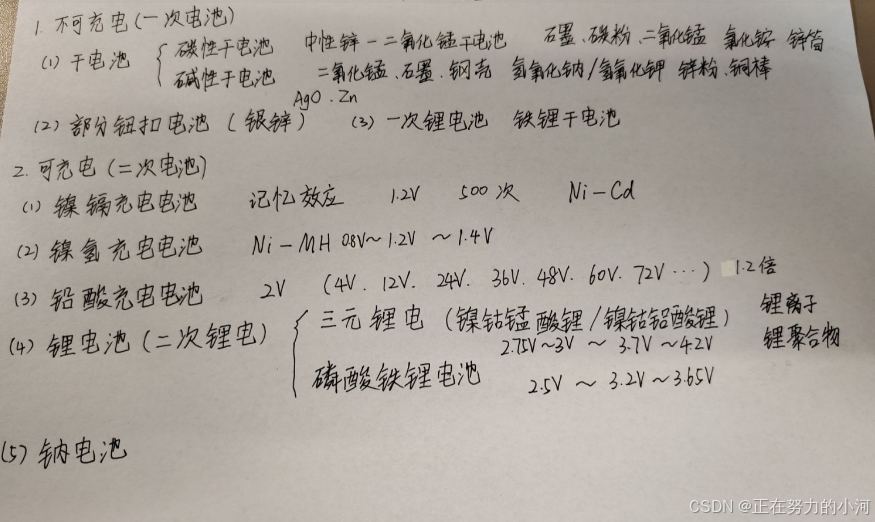 1. 不可充电(一次电池)
(1) 干电池 { 碳性干电池 中性锌-二氧化锰干电池 石墨、碳粉、二氧化锰 氯化锌 锌筒
碱性干电池 二氧化锰、石墨、钢壳 氢氧化钠/氢氧化钾 锌粉、铜棒
AgO、Zn
(2) 部分钮扣电池 (银锌) (3) 一次锂电池 铁锂干电池
2. 可充电(二次电池)
(1) 镍镉充电电池 记忆效应 1.2V 500次 Ni-Cd
(2) 镍氢充电电池 Ni-MH 0.8V~1.2V ~1.4V
(3) 铅酸充电电池 2V (4V、12V、24V、36V、48V、60V、72V…) 1.2倍
(4) 锂电池(二次锂电) { 三元锂电 (镍钴锰酸锂/镍钴铝酸锂) 锂离子
2.75V~3V ~ 3.7V~4.2V 锂聚合物
磷酸铁锂电池 2.5V ~ 3.2V~3.65V
(5) 钠电池
CSDN @正在努力的小河